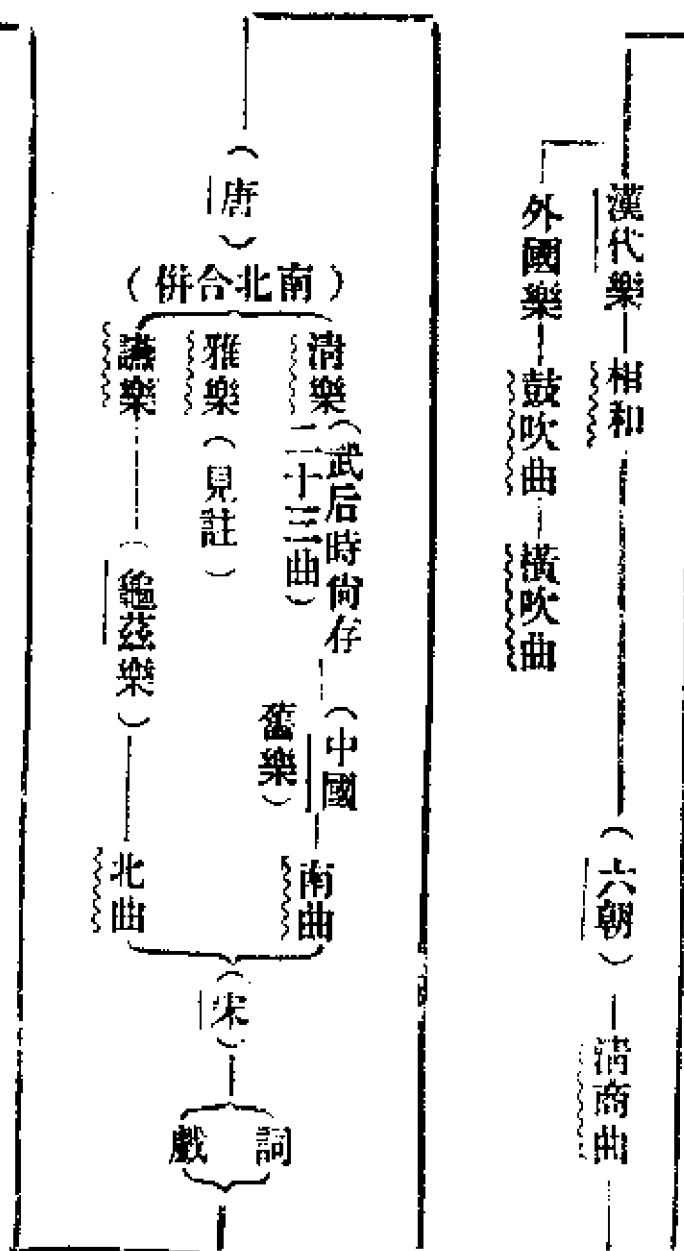 漢代樂—相和—(六朝)—清商曲
外國樂—鼓吹曲—橫吹曲
(唐)
(南北合併)
清樂(武后時尙存
二十三曲)
(中國
舊樂)
南曲
雅樂(見註)
讌樂
(龜茲樂)
北曲
(宋)
詞
戲